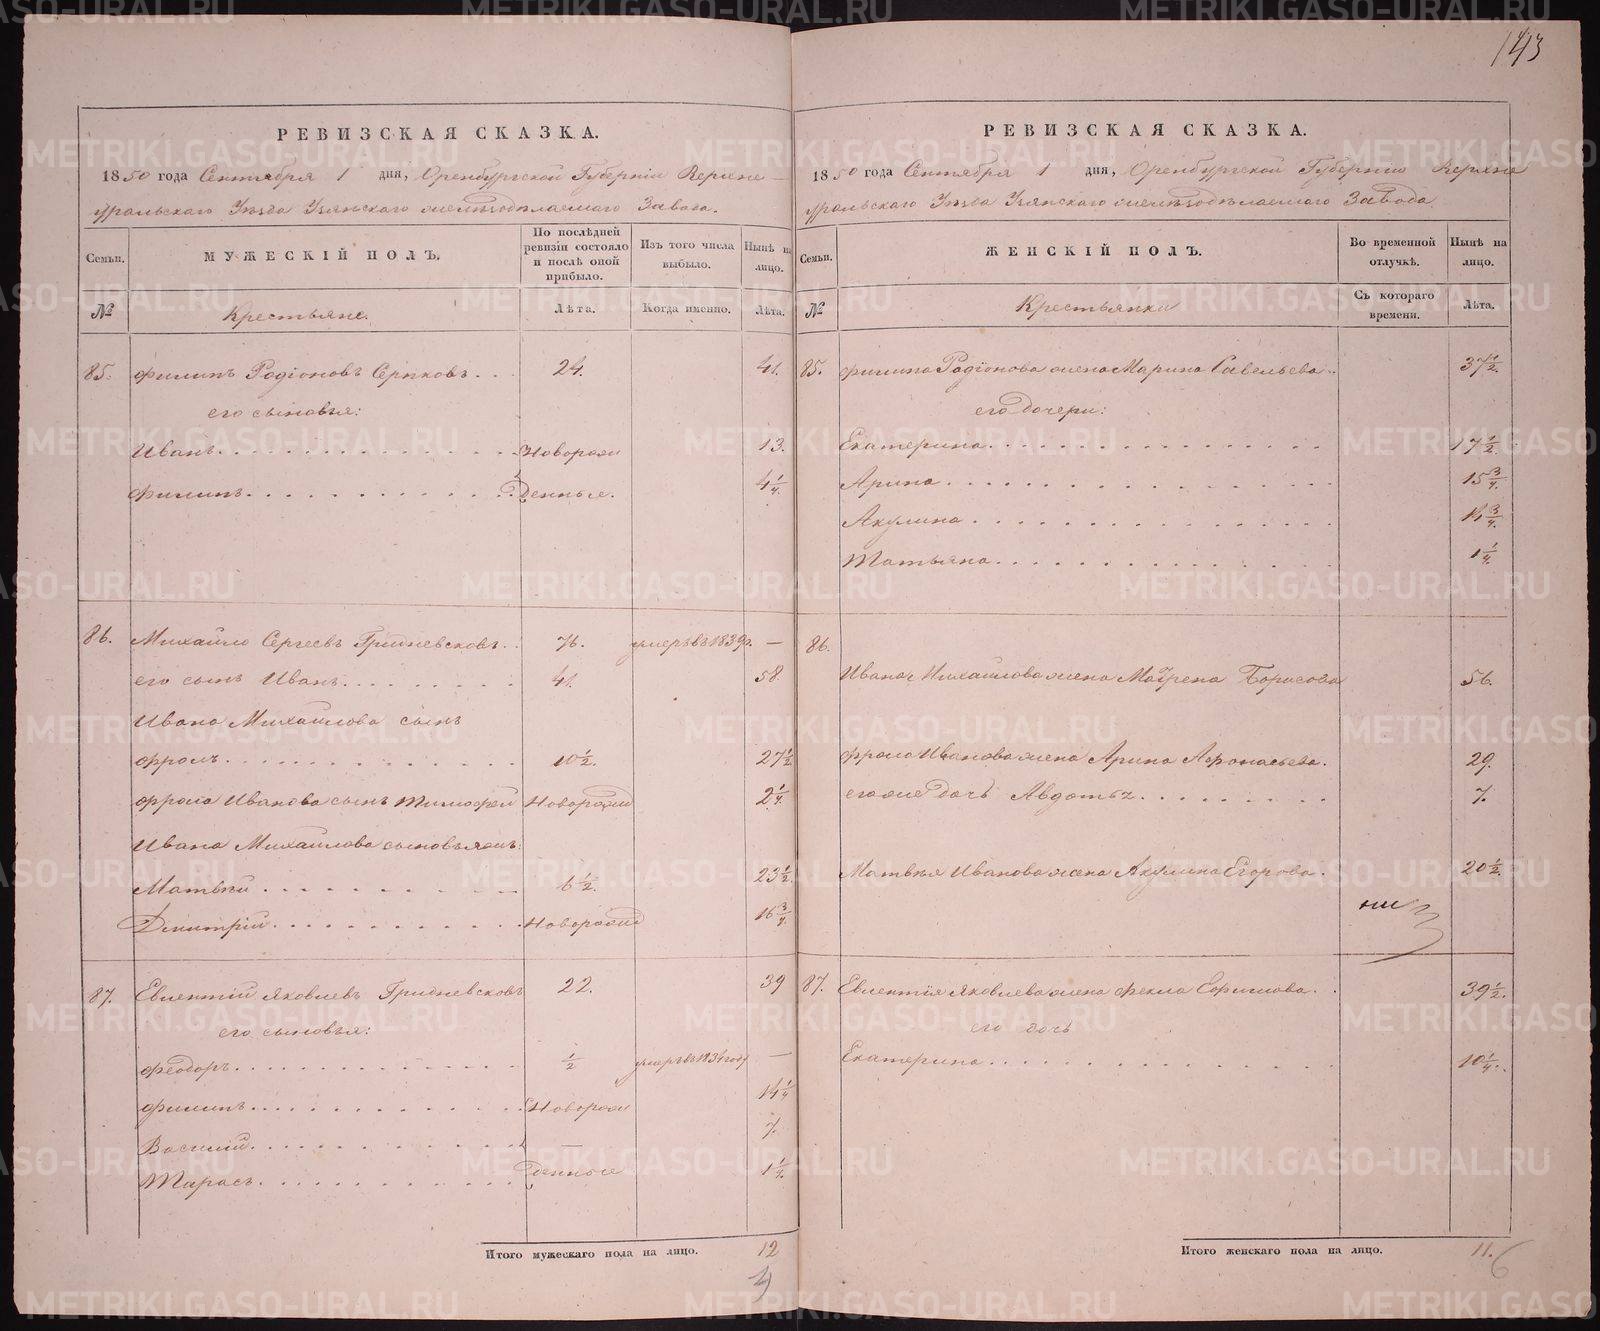 143
РЕВИЗСКАЯ СКАЗКА.
1850 года Сентября 1 дня, Оренбургской Губернiи Верхне-
уральскаго Уѣзда Узянскаго желѣзодѣлаемаго Завода.
Семьи.
МУЖЕСКIЙ ПОЛЪ.
По послѣдней ревизiи состояло и послѣ оной прибыло.
Изъ того числа выбыло.
Нынѣ на лицо.
№
Крестьяне.
Лѣта.
Когда именно.
Лѣта.
85. Филипъ Родiоновъ Серпковъ. . . 24. 41.
его сыновья:
Иванъ. Новорож 13.
Филипъ. денные. 4 1/4
86. Михайло Сергеевъ Гридневсковъ. . 76. умеръ въ 1839 г. —
его сынъ Иванъ. 41. 58
Ивана Михайлова сынъ
Фролъ. 10 1/2. 27 1/2
Фрола Иванова сынъ Тимофей Новорожд 2 1/4
Ивана Михайлова сыновья жъ:
Матвѣй 6 1/2. 23 1/2.
Дмитрiй. Новорожд 16 3/4
87. Евлентiй Яковлевъ Гридневсковъ 22. 39
его сыновья:
Феодоръ. 1/2 умеръ въ 1834 году —
Филипъ. Новорож 14 1/4
Василiй. — 7.
Тарасъ. денные 1 1/4.
Итого мужескаго пола на лицо. 12
РЕВИЗСКАЯ СКАЗКА.
1850 года Сентября 1 дня, Оренбургской Губернiи Верхне
уральскаго Уѣзда Узянскаго желѣзодѣлаемаго Завода.
Семьи.
ЖЕНСКIЙ ПОЛЪ.
Во временной отлучкѣ.
Нынѣ на лицо.
№
Крестьянки
Съ котораго времени.
Лѣта.
85. Филипа Родiонова жена Марина Савельева. 37 1/2.
его дочери:
Екатерина. 17 1/2.
Арина 15 3/4.
Акулина 3/4.
Татьяна. 1 1/4.
86.
Ивана Михайлова жена Матрена Борисова 56.
Фрола Иванова жена Арина Афонасьева. 29.
его же дочь Авдотья. 7.
Матвѣя Иванова жена Акулина Егорова. 20 1/2.
87. Евлентiя Яковлева жена Фекла Ефимова. 39 1/2.
его дочь
Екатерина. 10 1/4.
Итого женскаго пола на лицо. 11. 6
METRIKI.GASO-URAL.RU